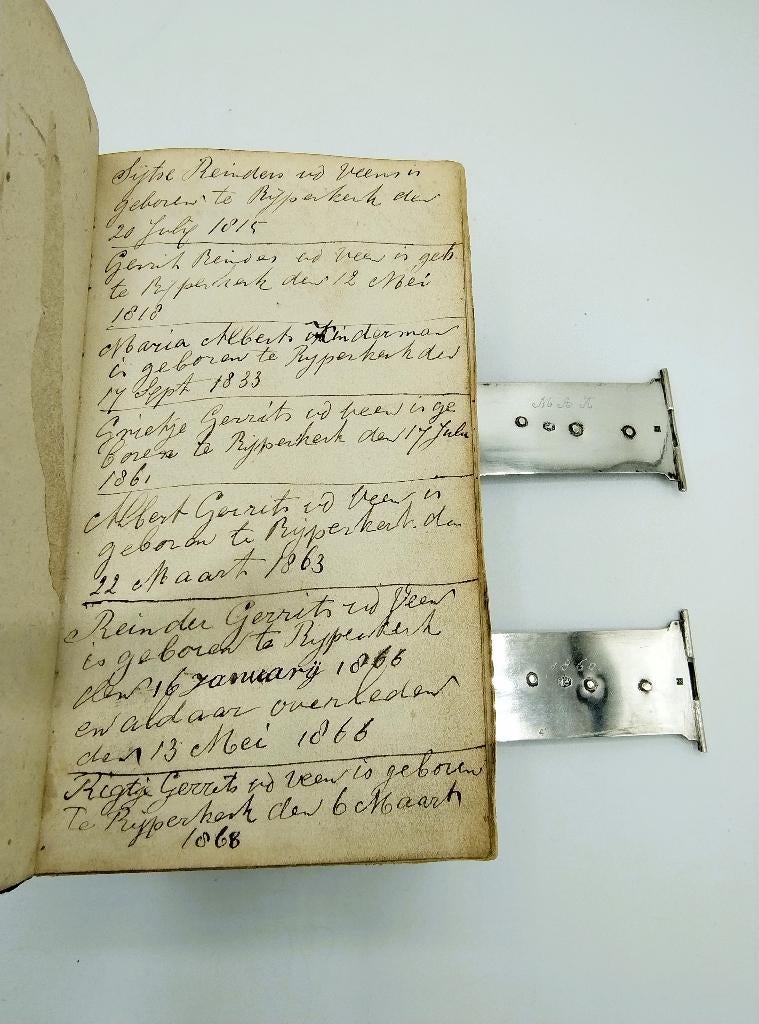 Sijtse Reinders vd Veen is
geboren te Rijperkerk den
20 July 1815
Gerrit Reinders vd Veen is geb.
te Rijperkerk den 12 Mei
1818
Maria Alberts Kinderman
is geboren te Rijperkerk den
17 Sept 1833
Grietje Gerrits vd Veen is ge
boren te Rijperkerk den 17 July
1861
Albert Gerrits vd Veen is
geboren te Rijperkerk den
22 Maart 1863
Reinder Gerrits vd Veen
is geboren te Rijperkerk
den 16 Januarij 1866
en aldaar overleden
den 13 Mei 1866
Rigtje Gerrits vd Veen is geboren
Te Rijperkerk den 6 Maart
1868
M A K
1860